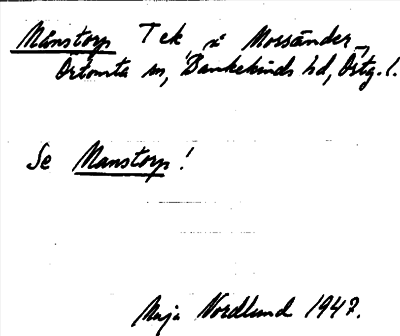 Månstorp Tek i Mossänder,
Örtomta sn, Bankekinds hd, Östg.l.
Se Manstorp!
Maja Nordlund 1947.